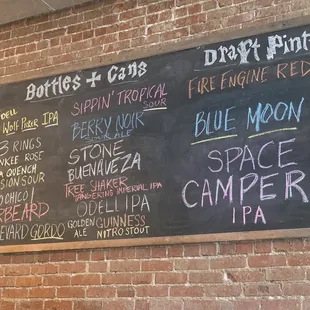 Bottles + Cans
Draft Pints
DELL
Wolf Picker IPA
3 RINGS
YANKEE ROSE
QUENCH
SESSION SOUR
PACIFICO
GORDO
SIPPIN' TROPICAL
SOUR
BERRY NOIR
ALE
STONE
BUENAVEZA
TREE SHAKER
TANGERINE IMPERIAL IPA
ODELL IPA
GOLDEN
ALE
GUINNESS
NITRO STOUT
FIRE ENGINE RED
BLUE MOON
SPACE
CAMPER
IPA